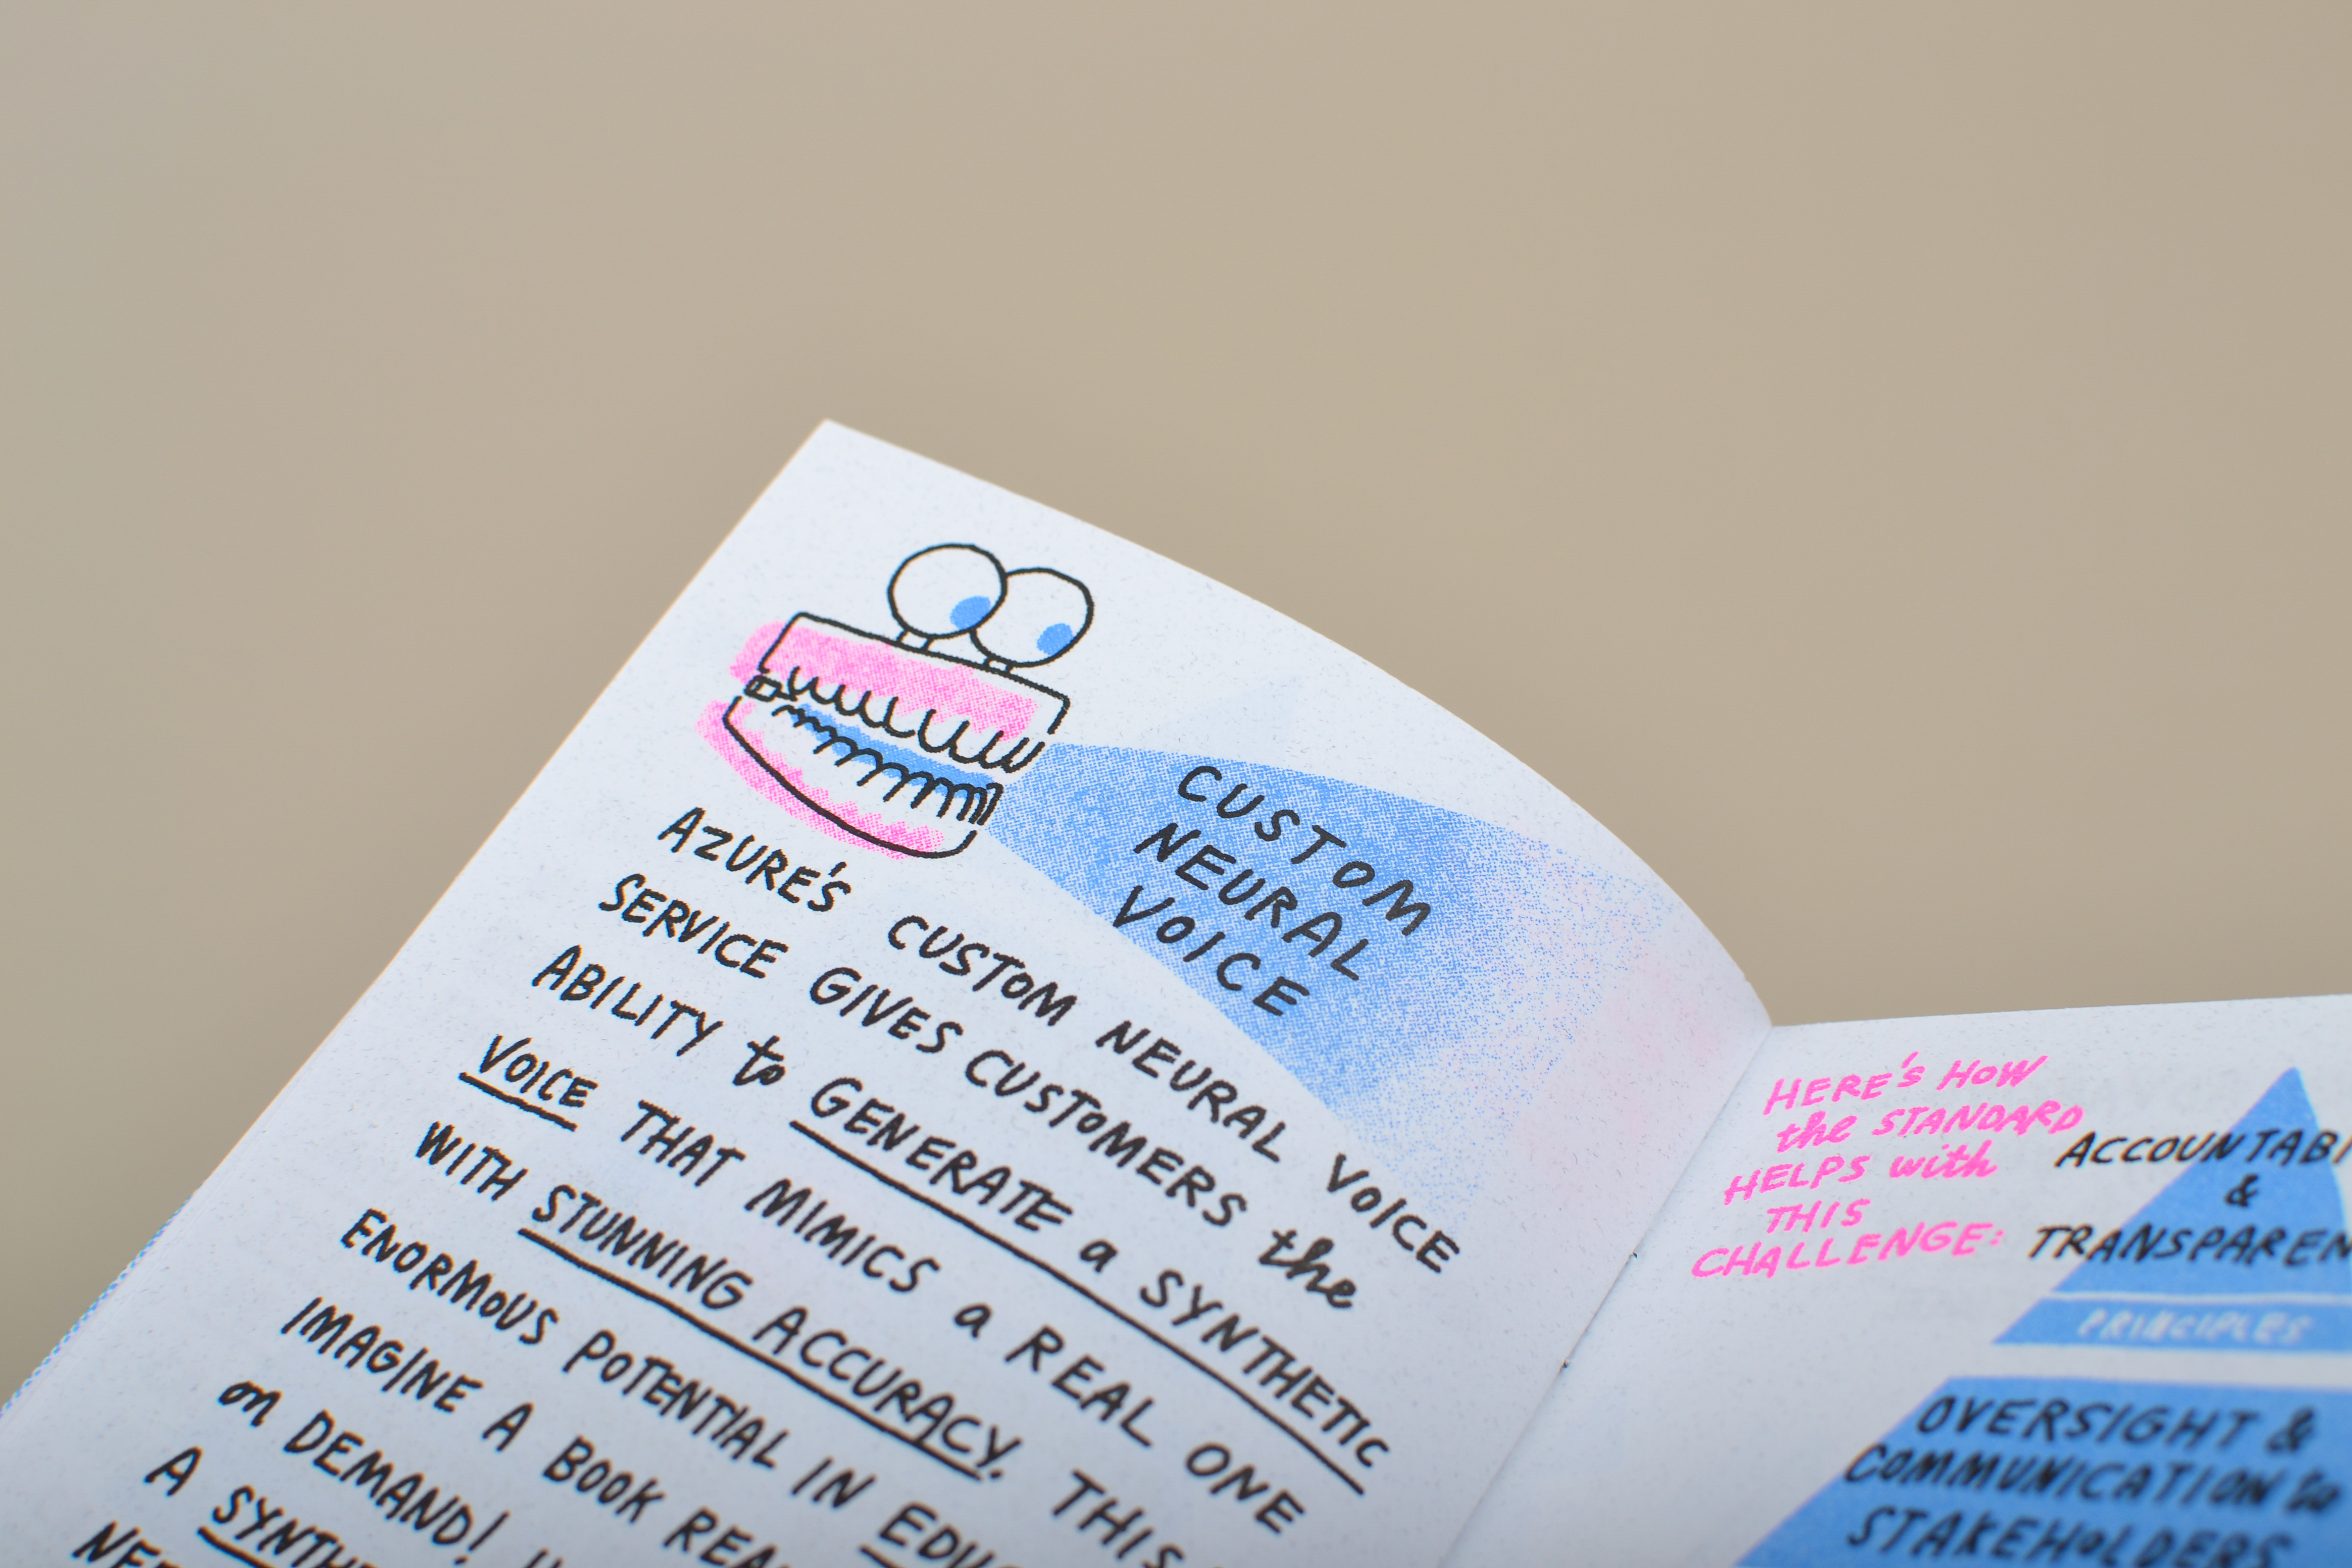 CUSTOM
NEURAL
VOICE
AZURE'S CUSTOM NEURAL VOICE
SERVICE GIVES CUSTOMERS the
ABILITY to GENERATE a SYNTHETIC
VOICE THAT MIMICS a REAL ONE
WITH STUNNING ACCURACY. THIS
ENORMOUS POTENTIAL IN
IMAGINE A BOOK
on DEMAND!
A
HERE'S HOW
the STANDARD
HELPS with
THIS
CHALLENGE:
&
PRINCIPLES
OVERSIGHT &
COMMUNICATION to
STAKEHOLDERS